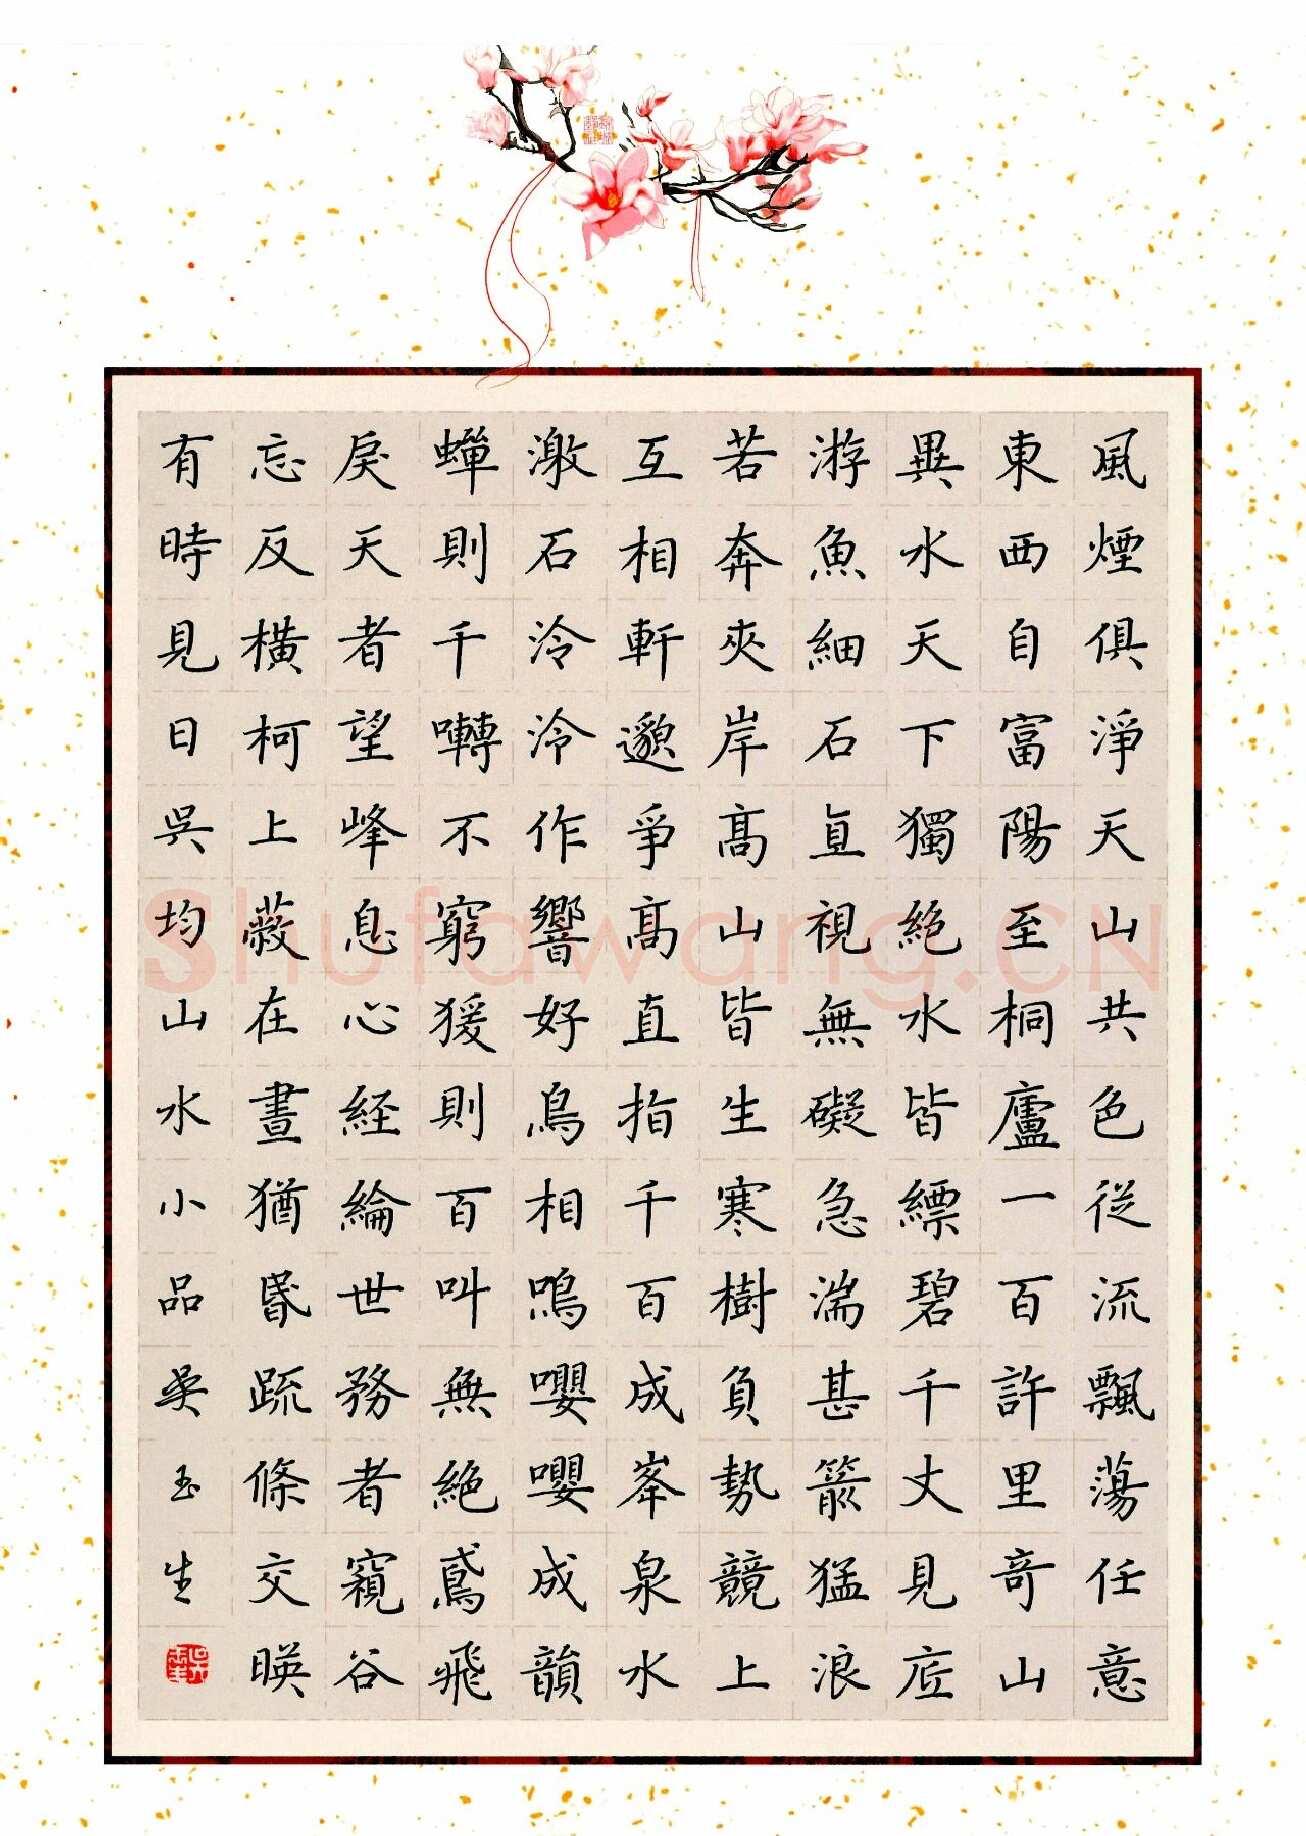 風煙俱淨天山共色從流飄蕩任意
東西自富陽至桐廬一百許里奇山
異水天下獨絕水皆縹碧千丈見底
游魚細石直視無礙急湍甚箭猛浪
若奔夾岸高山皆生寒樹負勢競上
互相軒邈爭高直指千百成峯泉水
激石泠泠作響好鳥相鳴嚶嚶成韻
蟬則千囀不窮猨則百叫無絕鳶飛
戾天者望峰息心経綸世務者窺谷
忘反橫柯上蔽在晝猶昏疏條交映
有時見日吳均山水小品吳玉生
Shufawang.CN